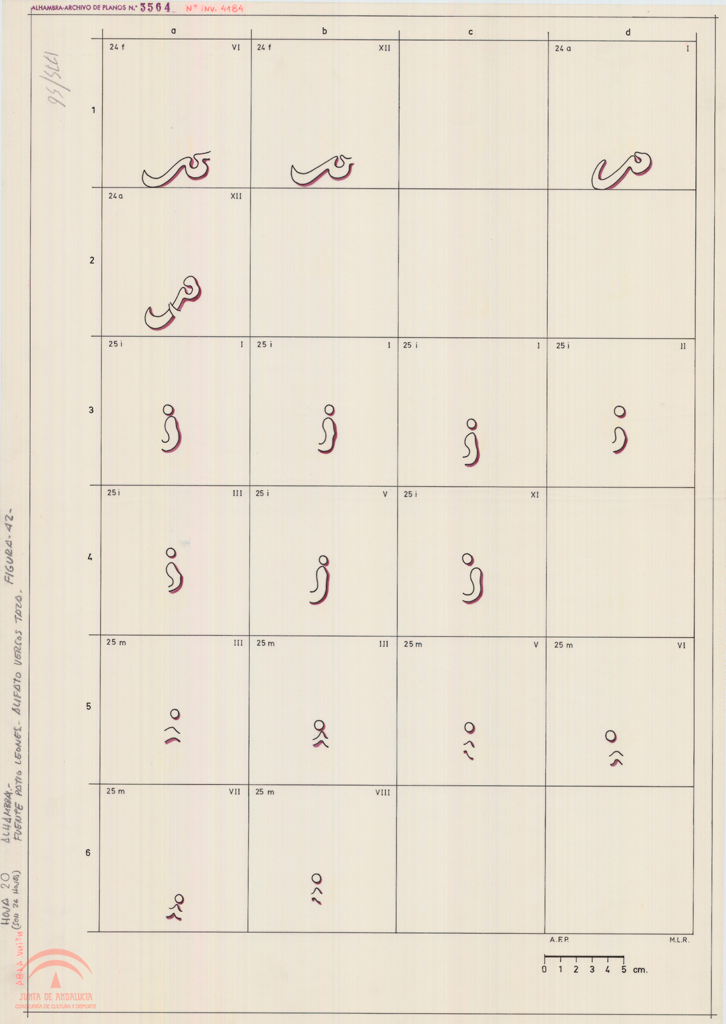 ALHAMBRA-ARCHIVO DE PLANOS N.º 3564 Nº INV. 4184
a b c d
1
24 f VI
24 f XII
24 a I
2
24 a XII
3
25 i I
25 i I
25 i I
25 i II
4
25 i III
25 i V
25 i XI
5
25 m III
25 m III
25 m V
25 m VI
6
25 m VII
25 m VIII
A.F.P. M.L.R.
0 1 2 3 4 5 cm.
HOJA 20 ALHAMBRA.- FIGURA-42-
(SON 26 HOJAS) FUENTE PATIO LEONES.- ALIFATO VERSOS TAZA.
JUNTA DE ANDALUCIA
CONSEJERÍA DE CULTURA Y DEPORTE